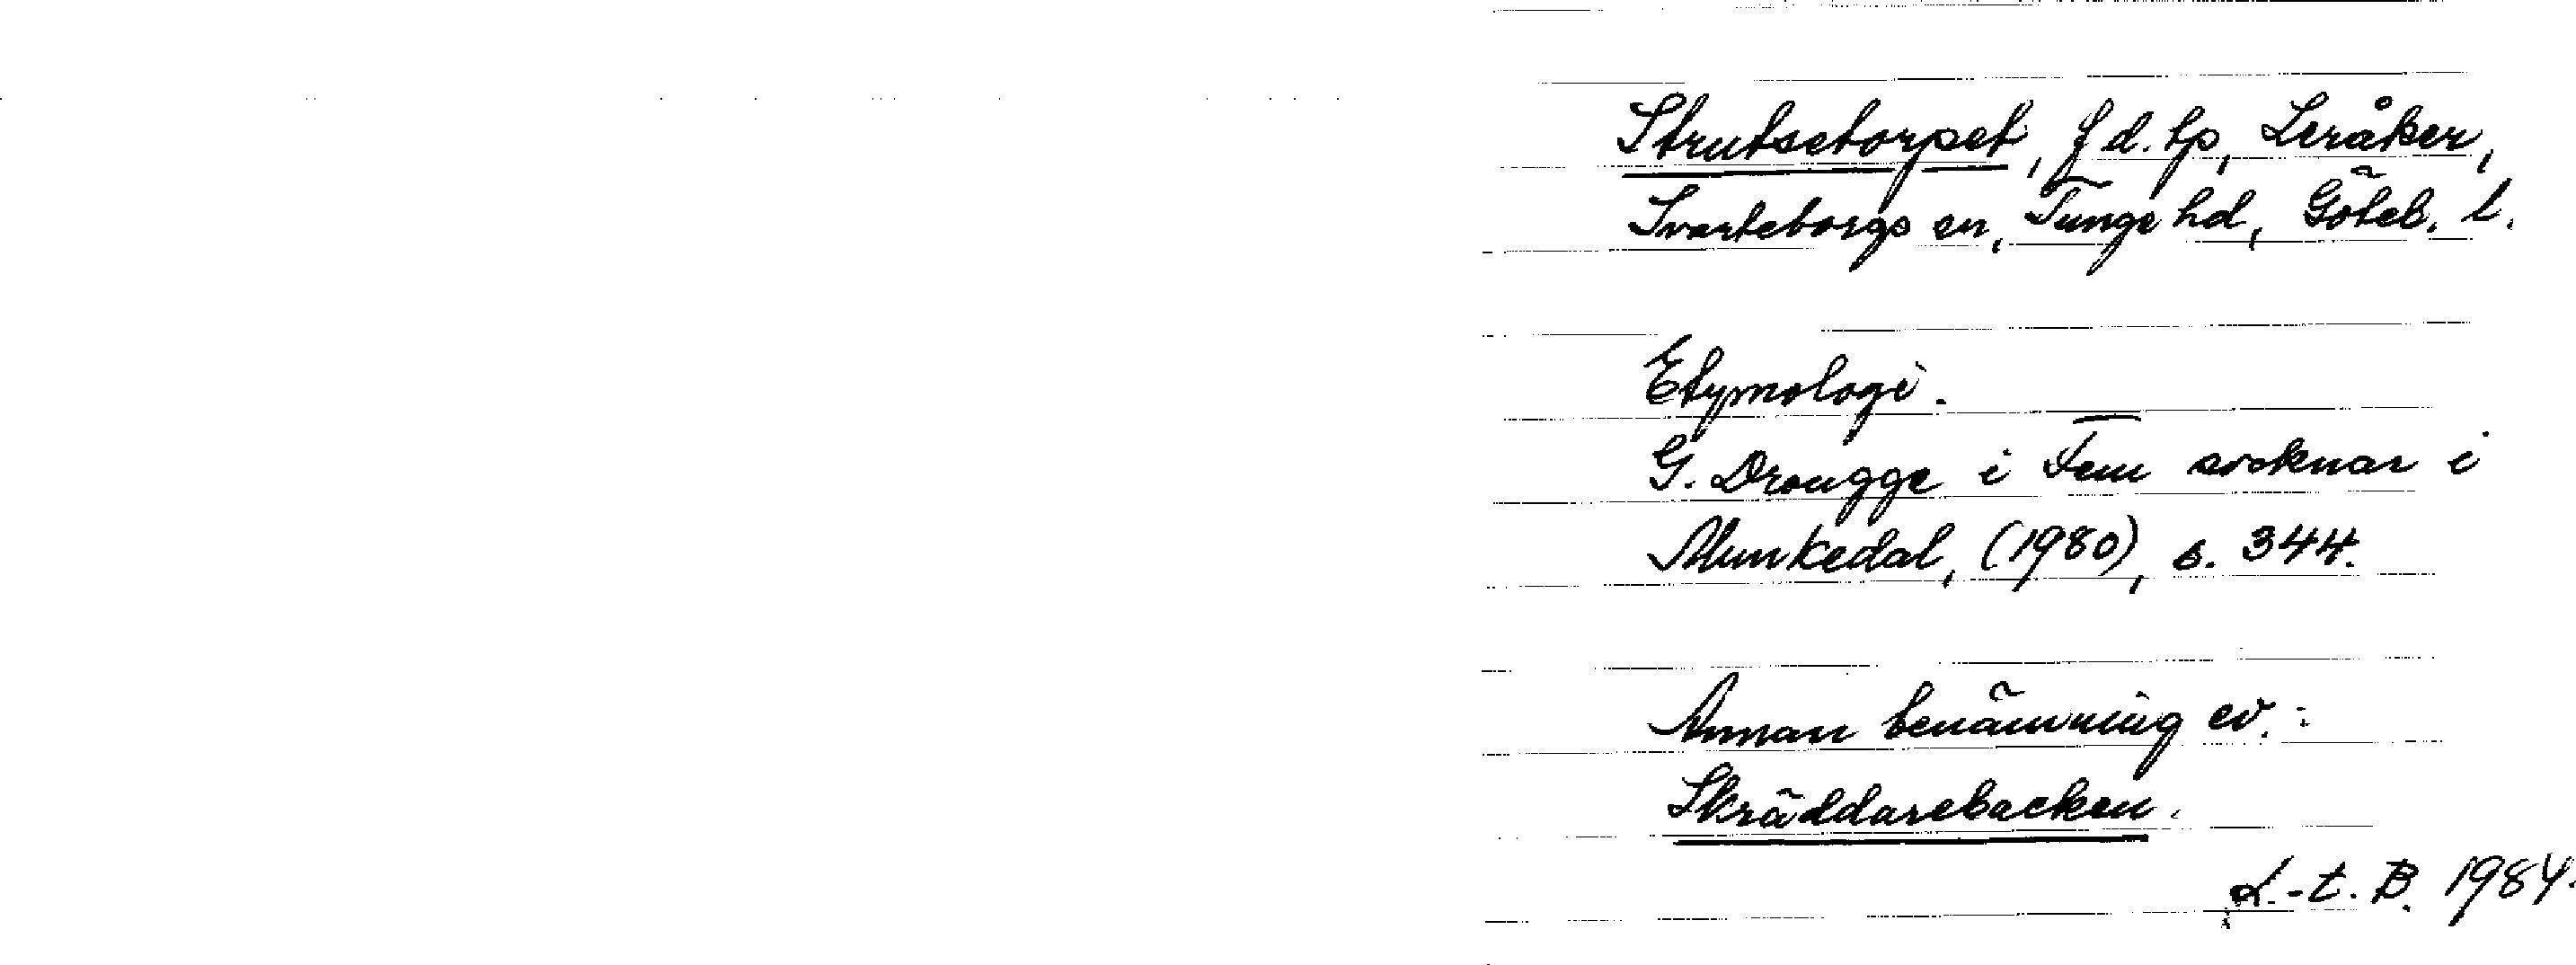 Strutsetorpet, f d. tp, Leråker,
Svarteborgs sn, Tunge hd, Göteb. l.
Etymologi.
G. Drougge i Fem socknar i
Munkedal, (1980), s. 344.
Annan benämning ev.:
Skräddarebacken.
L.-t. B. 1984.